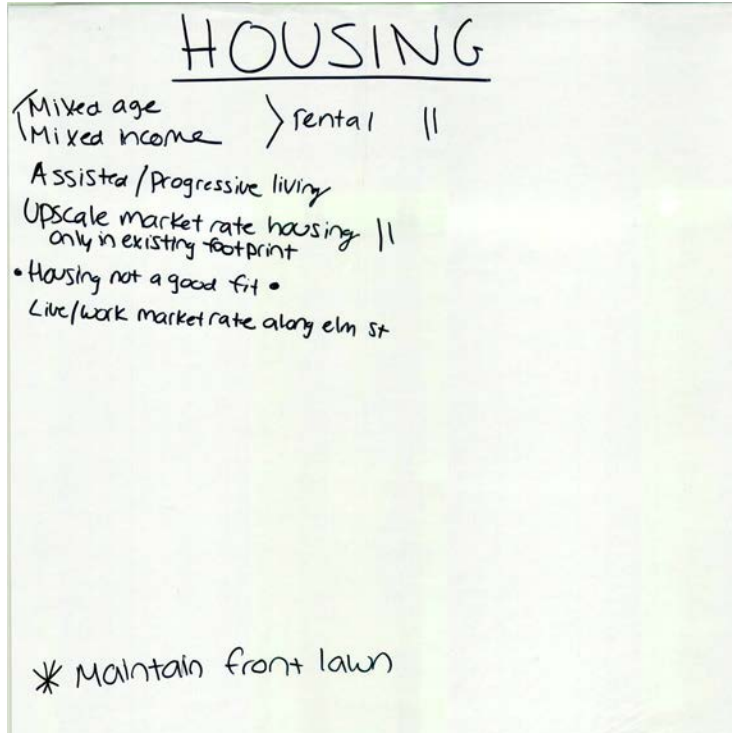 HOUSING
Mixed age
Mixed income > rental ||
Assisted / Progressive living
Upscale market rate housing ||
only in existing footprint
• Housing not a good fit •
Live/work market rate along elm st
* Maintain front lawn